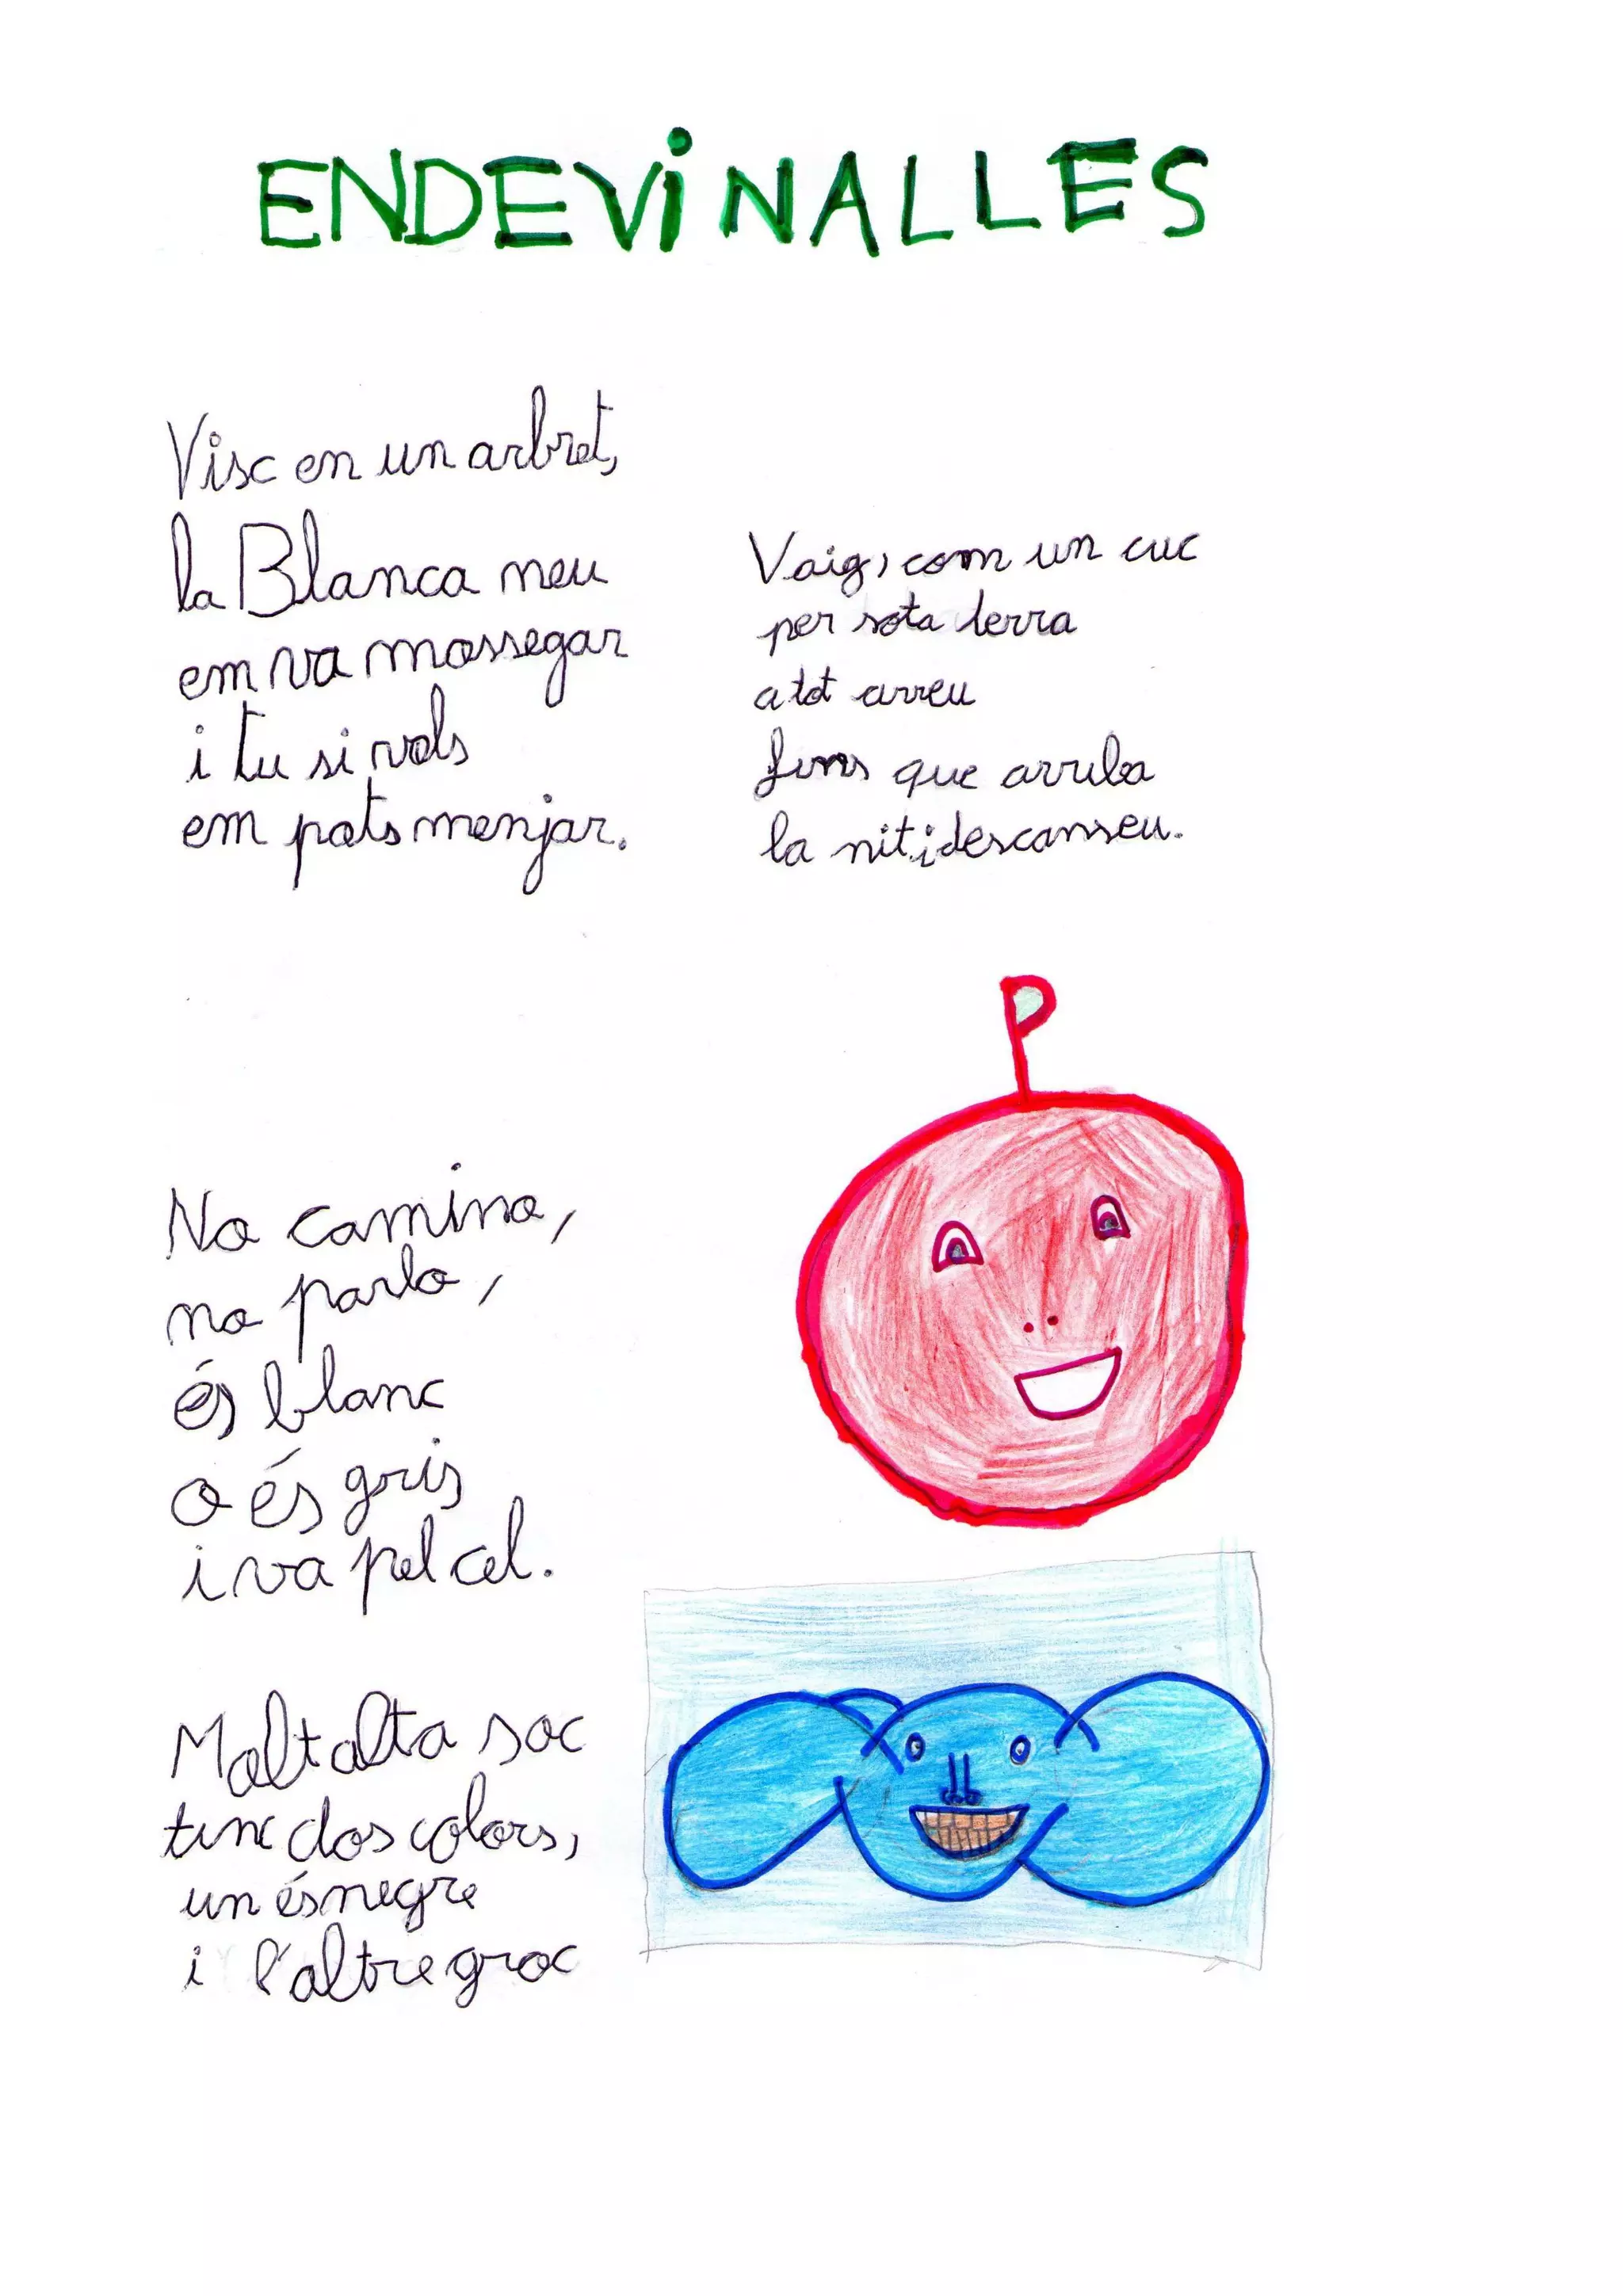 ENDEViNALLES
Visc en un arbret,
la Blanca neu
em va mossegar
i tu si vols
em pots menjar.
Vaig, com un cuc
per sota terra
a tot arreu
fins que arriba
la nit i descanseu.
No camina,
no parla,
és blanc
o és gris
i va pel cel.
Molt alta soc
tinc dos colors,
un és negre
i l'altre groc